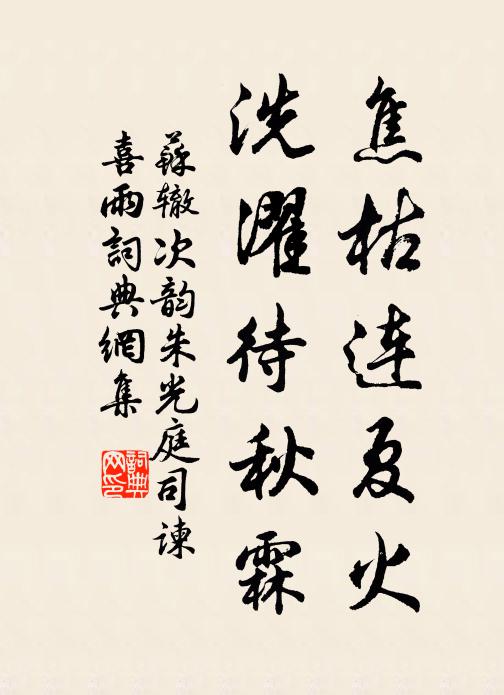 焦枯连夏火
洗濯待秋霖
蘇辙次韵朱光庭司諫
喜雨詞典網集
詞典网印